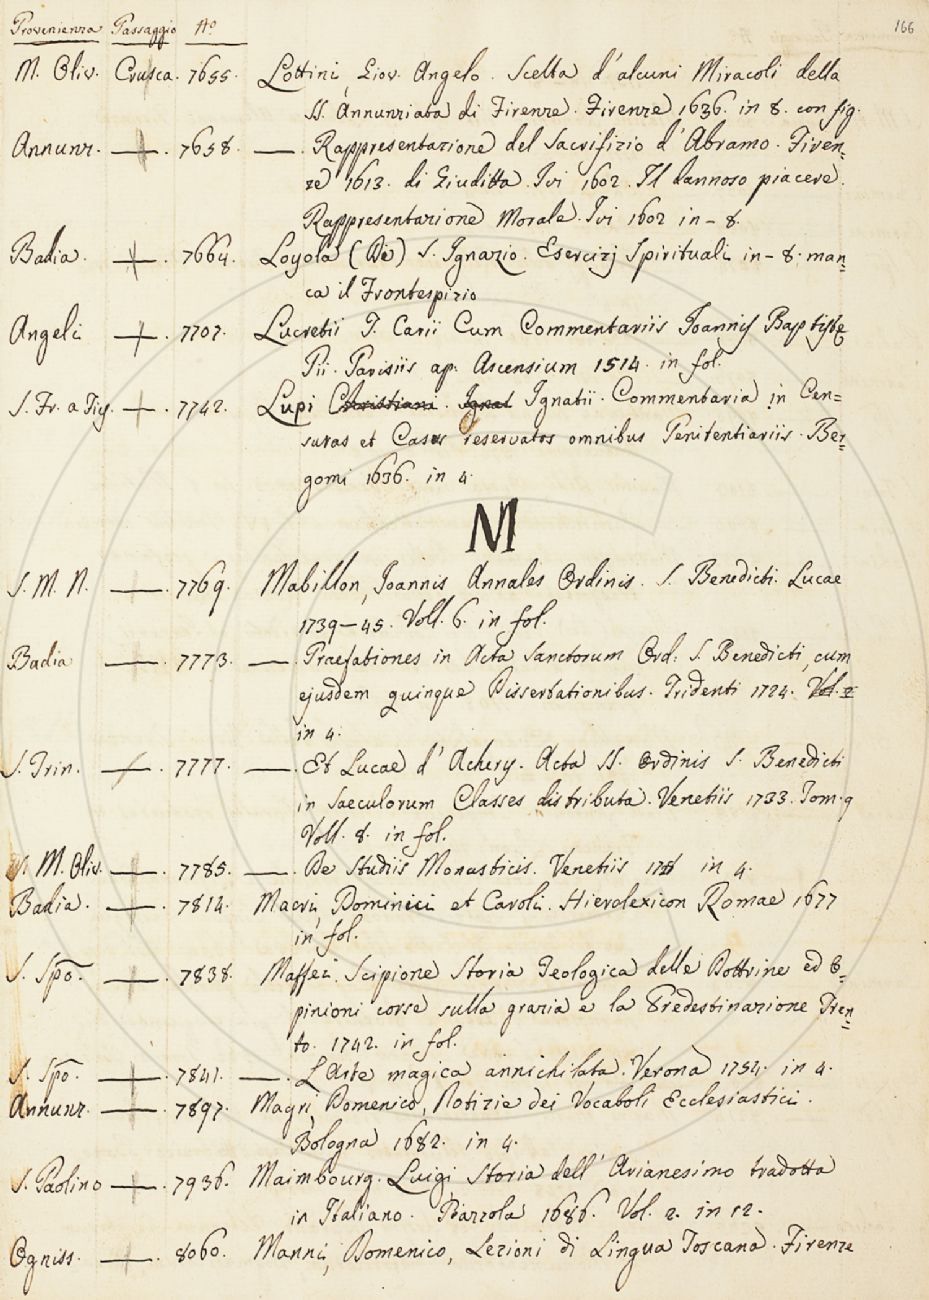 Provenienza Passaggio N.o
166
M. Oliv. Crusca. 7655. Lottini, Giov. Angelo. Scelta d'alcuni Miracoli della
SS. Annunziata di Firenze. Firenze 1636. in 8. con fig.
Annunz. — . 7658. — . Rappresentazione del Sacrifizio d'Abramo. Firen=
ze 1613. di Giuditta. Ivi 1602. Il dannoso piacere.
Rappresentazione Morale. Ivi 1602 in-8.
Badia. — . 7664. Loyola (De) S. Ignazio. Esercizj Spirituali in-8. man=
ca il Frontespizio
Angeli — . 7707. Lucretii T. Carii Cum Commentariis Joannis Baptistę
Pii. Parisiis ap. Ascensium 1514. in fol.
S. Fr. a Fig. — . 7742. Lupi Christiani. Ignat Ignatii. Commentaria in Cen=
suras et Casus reservatos omnibus Penitentiariis. Ber=
gomi 1636. in 4.
M
S. M. N. — . 7769. Mabillon, Joannis Annales Ordinis. S. Benedicti. Lucae
1739-45. Voll. 6. in fol.
Badia — . 7773. — . Praefationes in Acta Sanctorum Ord. S. Benedicti, cum
ejusdem quinque Dissertationibus. Tridenti 1724. Vol. 2
in 4.
S. Trin. — . 7777. — . Et Lucae d'Achery. Acta SS. Ordinis S. Benedicti
in Saeculorum Classes distributa. Venetiis 1733. Tom. 9
Voll. 8. in fol.
M. Oliv. — . 7785. — . De Studiis Monasticis. Venetiis in 4.
Badia. — . 7814. Macri, Dominici et Caroli. Hierolexicon Romae 1677
in fol.
S. Spo. — . 7838. Maffei. Scipione Storia Teologica delle Dottrine ed O=
pinioni corse sulla grazia e la Predestinazione Tren=
to. 1742. in fol.
S. Spo. — . 7841. — . L'Arte magica annichilata. Verona 1754. in 4.
Annunz. — . 7897. Magri, Domenico, Notizie dei Vocaboli Ecclesiastici.
Bologna 1682. in 4.
S. Paolino — . 7936. Maimbourg. Luigi Storia dell' Arianesimo tradotta
in Italiano. Piazzola 1686. Vol. 2. in 12.
Ogniss. — . 8060. Manni, Domenico, Lezioni di Lingua Toscana. Firenze